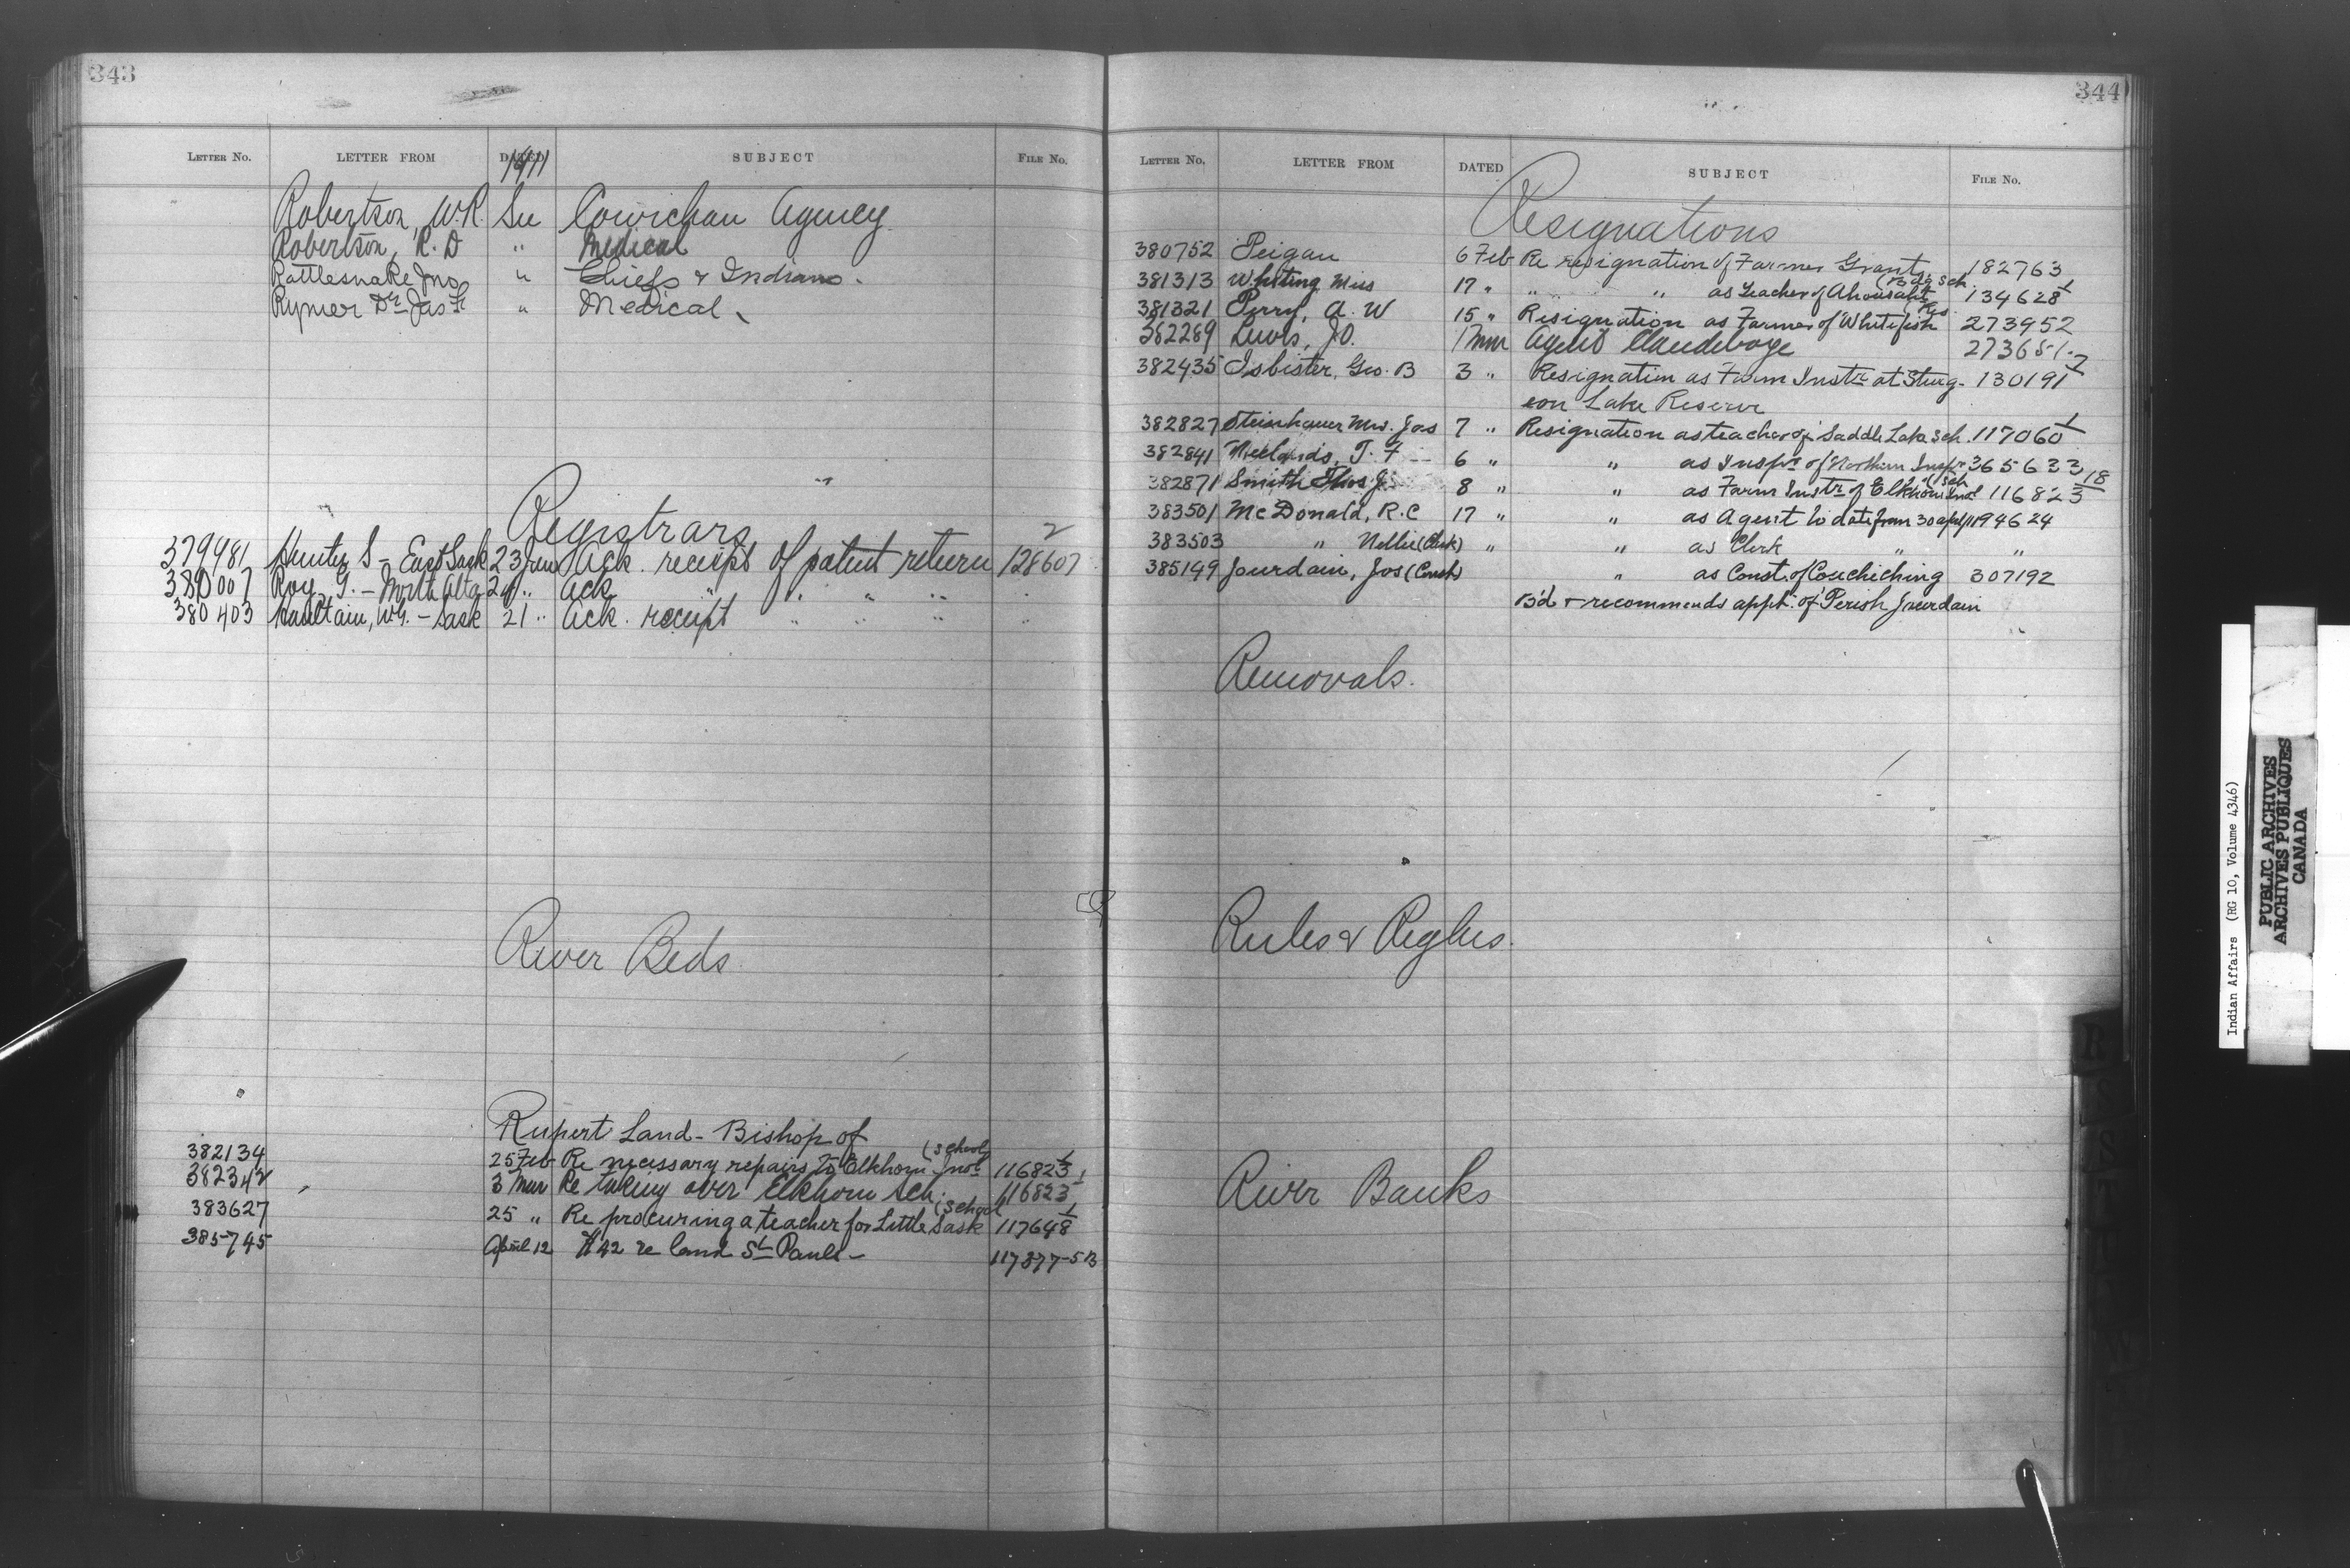 343
LETTER No. LETTER FROM DATED 1911 SUBJECT FILE No.
Robertson, W.R. See Cowichan Agency
Robertson, R. D " Medical
Rattlesnake Jno " Chiefs & Indians.
Rymer Dr Jas H " Medical
Registrars
379981 Hunter S - East Sask 23 Jan Ack. receipt of patent return 128607 2
380007 Roy, G. - North Alta 24 " Ack " " " "
380403 Haultain, W.G. - Sask 21 " Ack. receipt " " " "
River Beds
Rupert Land - Bishop of
382134 25 Feb Re necessary repairs to Elkhorn Indl (School) 116823 1
382342 3 Mar Re taking over Elkhorn Sch. 116823 1
383627 25 " Re procuring a teacher for Little Sask (School 117648 1
385745 April 12 #42 re land St Pauls - 117377-5B
344
LETTER No. LETTER FROM DATED SUBJECT FILE No.
Resignations
380752 Peigan 6 Feb Re resignation of Farmer Grant 182763
381313 Whiting Miss 17 " " " as teacher of Ahousaht (Bdg Sch. 134628 1
381321 Perry, A. W 15 " Resignation as Farmer of Whitefish Res 273952
382289 Lewis, J.O. 1 Mar Agent Clandeboye 273651-2
382435 Isbister, Geo. B 3 " Resignation as Farm Instr at Sturg- 130191
eon Lake Reserve
382827 Steinhauer Mrs. Jas 7 " Resignation as teacher of Saddle Lake Sch. 117060 1
382841 Neelands, T. F 6 " " as Inspr of Northern Inspr 365633
382871 Smith Thos J. 8 " " as Farm Instr. of Elkhorn Indl Sch 116823 18
383501 McDonald, R.C 17 " " as Agent to date from 30 apl/11 194624
383503 " Nellie (Clerk) " " as Clerk " "
385149 Jourdain, Jos (Const) " as Const. of Couchiching 307192
B'd & recommends appt. of Perish Jourdain
Removals.
Rules & Reglns.
River Banks
Indian Affairs (RG 10, Volume 4346)
PUBLIC ARCHIVES
ARCHIVES PUBLIQUES
CANADA